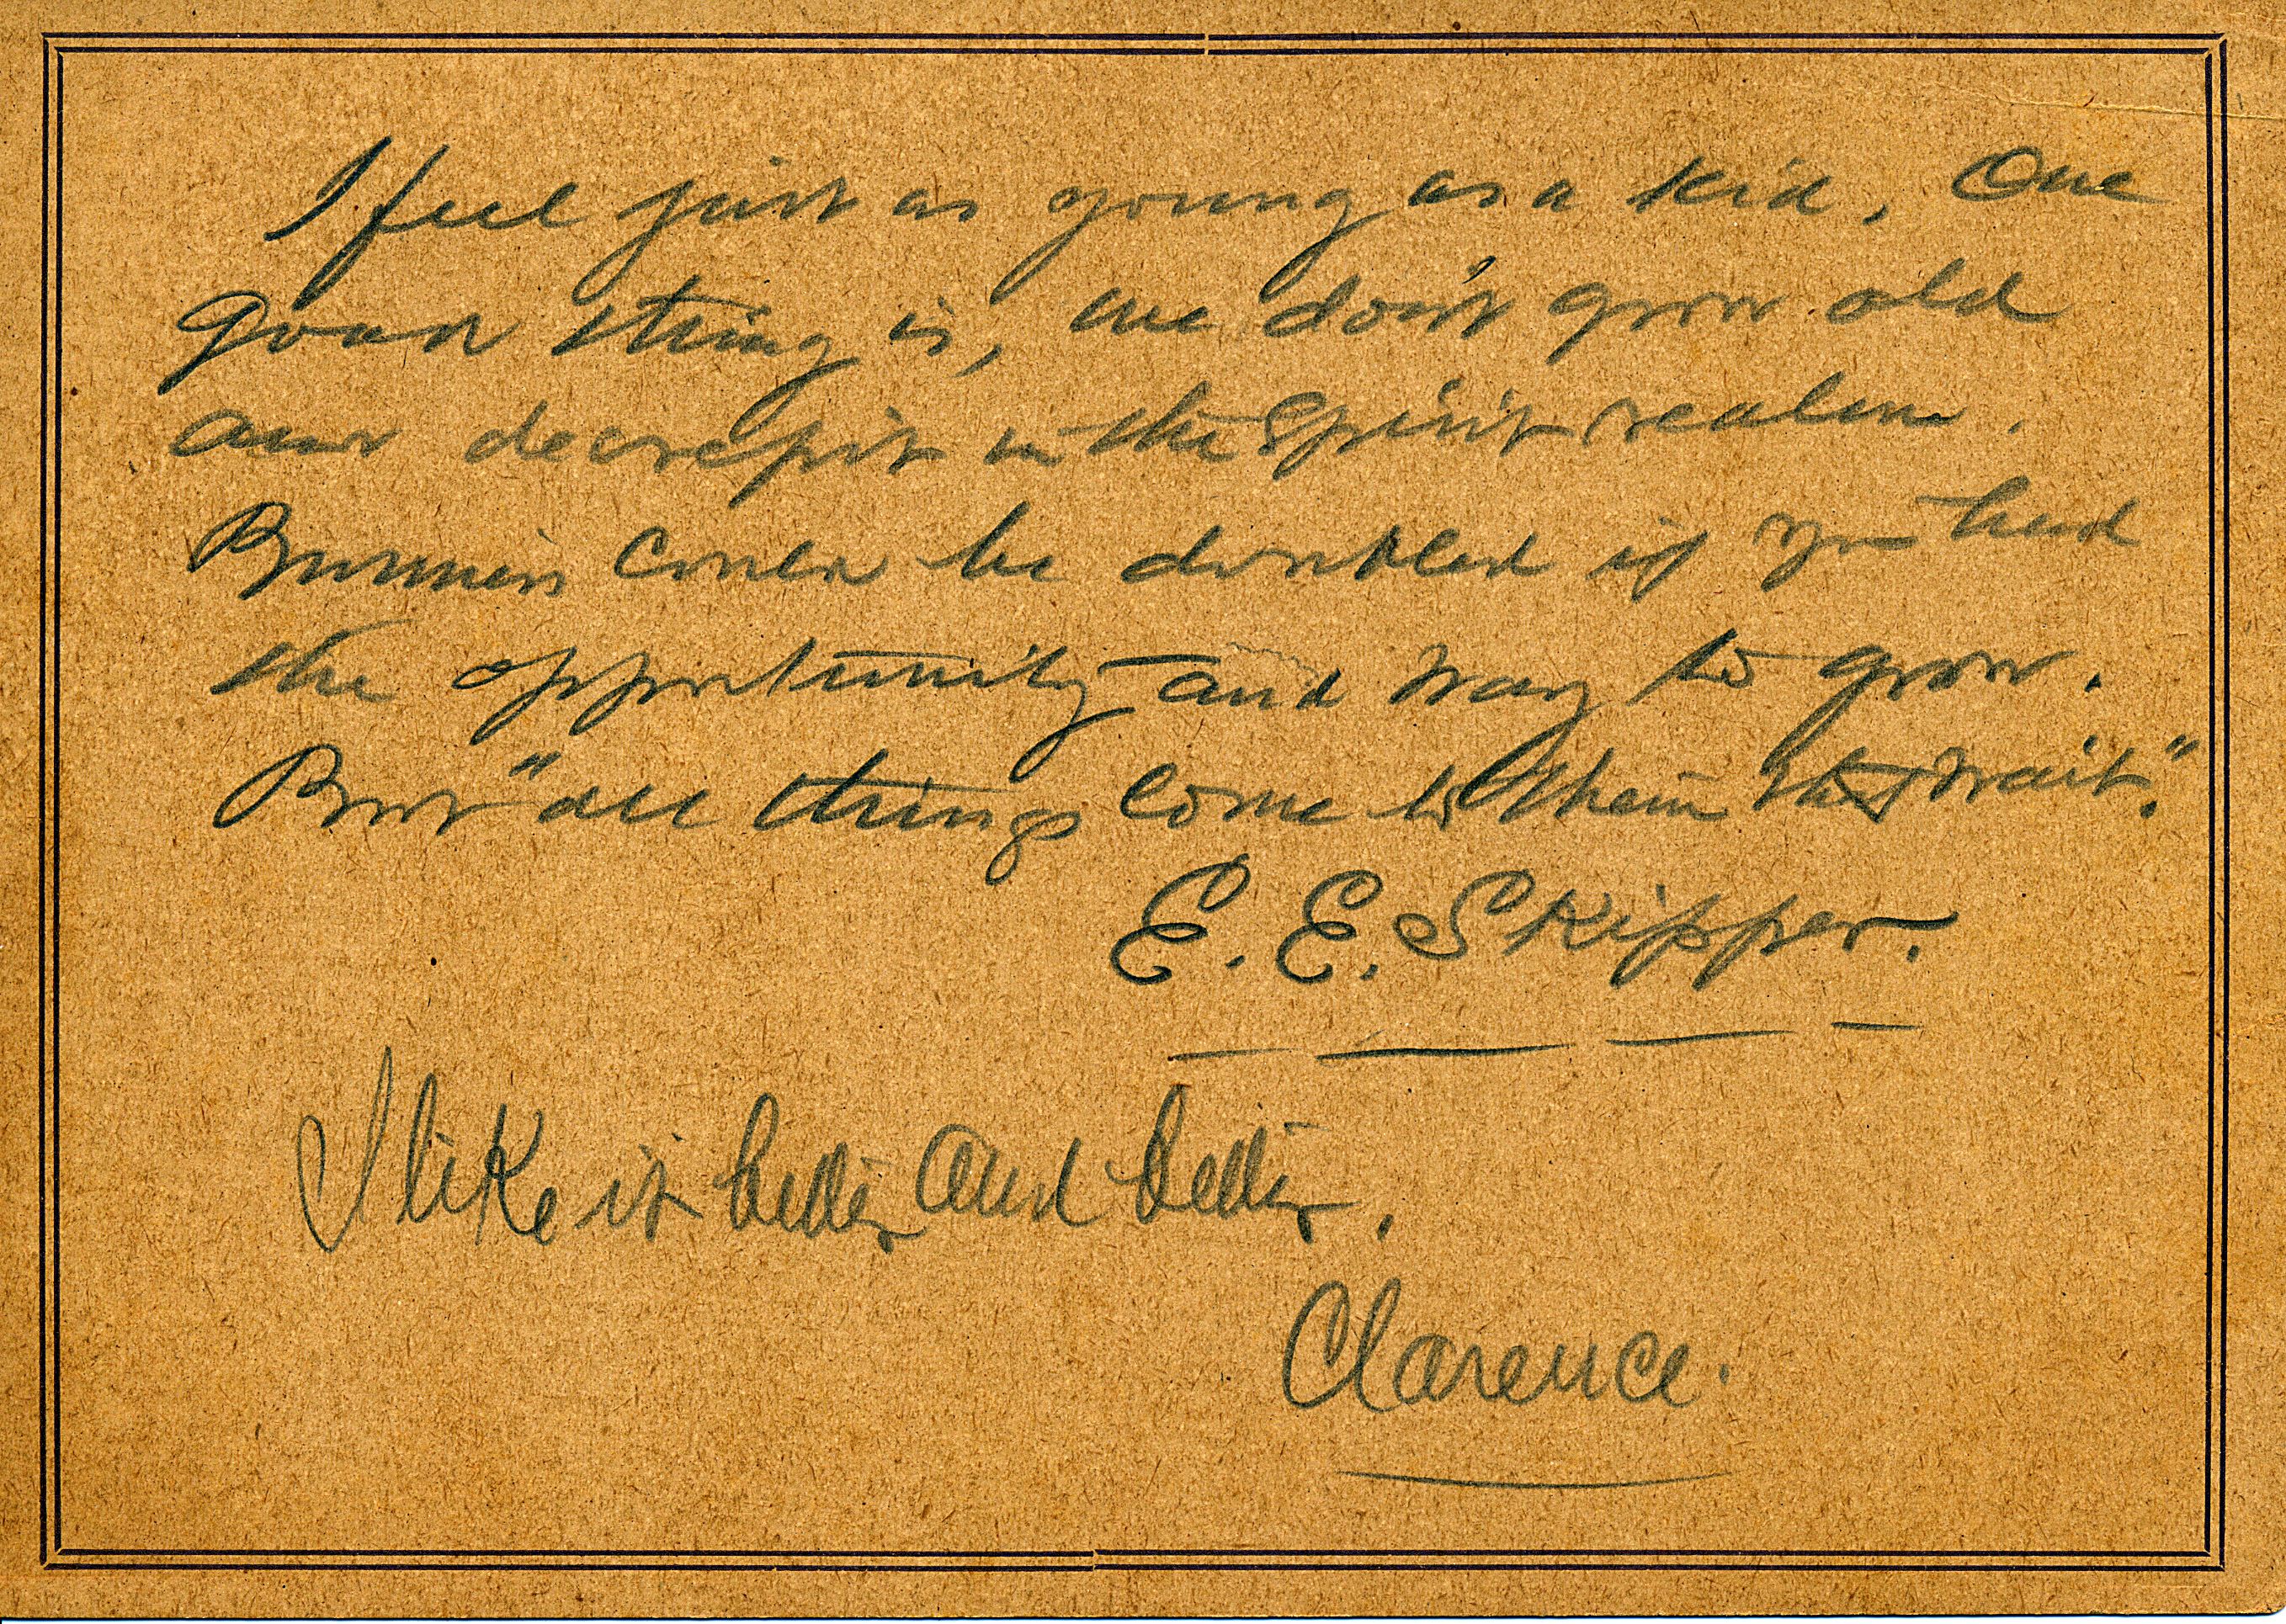 I feel just as young as a kid. One
good thing is, we don't grow old
and decrepit in the Spirit realm.
Business could be doubled if you had
the opportunity and way to grow.
But "all things come to them that wait."
E. E. Skipper.
I like it better and better.
Clarence.